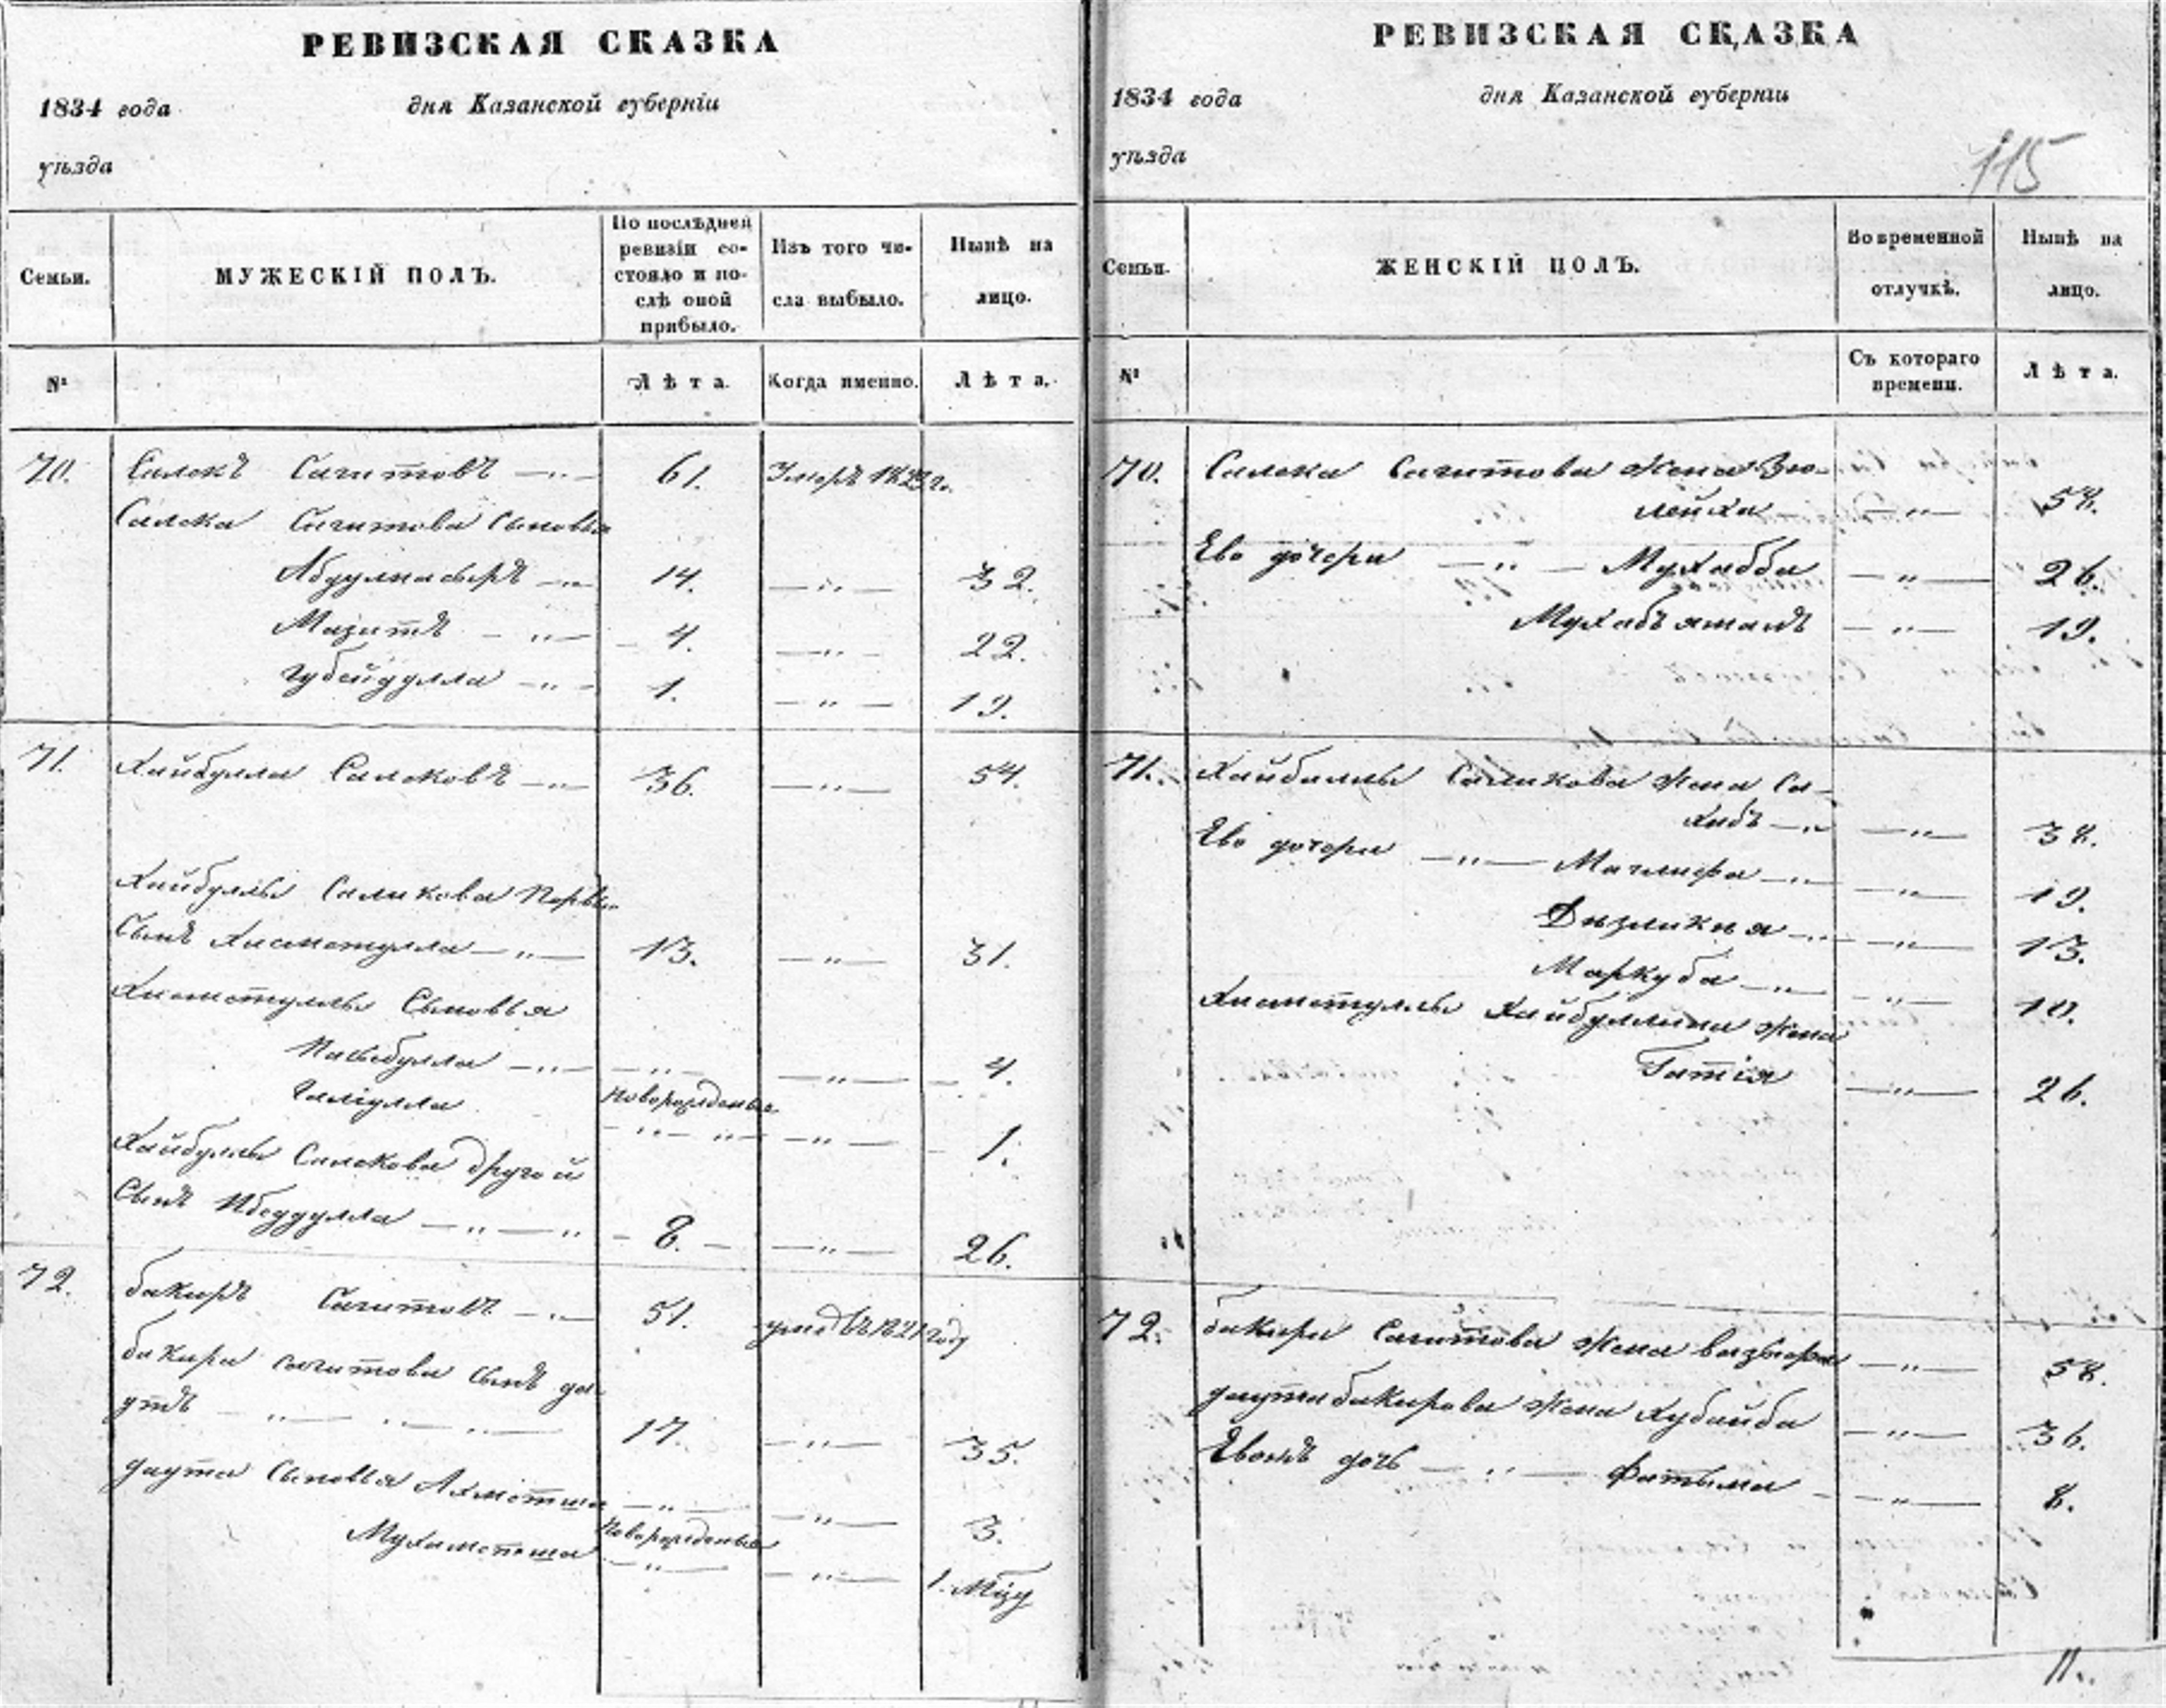 РЕВИЗСКАЯ СКАЗКА
1834 года дня Казанской губернiи
уѣзда
Семьи.
МУЖЕСКIЙ ПОЛЪ.
По послѣдней ревизiи со-
стояло и по-
слѣ оной
прибыло.
Изъ того чи-
сла выбыло.
Нынѣ на
лицо.
№
Лѣта.
Когда именно.
Лѣта.
70. Салекъ Сагитовъ 61. Умеръ 1823 г.
Салека Сагитова сыновья
Абдулнасыръ 14. 32.
Мазитъ 4. 22.
Губейдулла 1. 19.
71. Хайбулла Салековъ 36. 54.
Хайбуллы Саликова первы
Сынъ Хисметулла 13. 31.
Хисметуллы Сыновья
4.
Галiулла новорожденные
1.
Хайбуллы Салекова другой
Сынъ Ибедулла 8. 26.
72. бакиръ Сагитовъ 51. въ 1821 году
бакира сагитова сынъ да-
утъ 17. 35.
даута Сыновья Ахметша 3.
Мухаметша Новорожденные 1. мцу
РЕВИЗСКАЯ СКАЗКА
1834 года дня Казанской губернiи
уѣзда
115
Семьи.
ЖЕНСКIЙ ПОЛЪ.
Во временной
отлучкѣ.
Нынѣ на
лицо.
№
Съ котораго
времени.
Лѣта.
70. Салека Сагитова жена Зю-
лейха 58.
Ево дочери Мухабба 26.
19.
71. Хайбуллы Саликова жена Са-
хибъ 38.
Ево дочери Маглифа 19.
13.
Маркуба 10.
Хисметуллы Хайбуллина жена
Гатiя 26.
72. бакира Сагитова жена 58.
даута бакирова жена Хубайба 36.
Евонъ дочь Фатыма 8.
11.